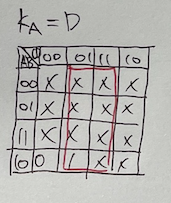 K_A = D
AB 00 01 11 10
00 X X X X
01 X X X X
11 X X X X
10 0 1 X X